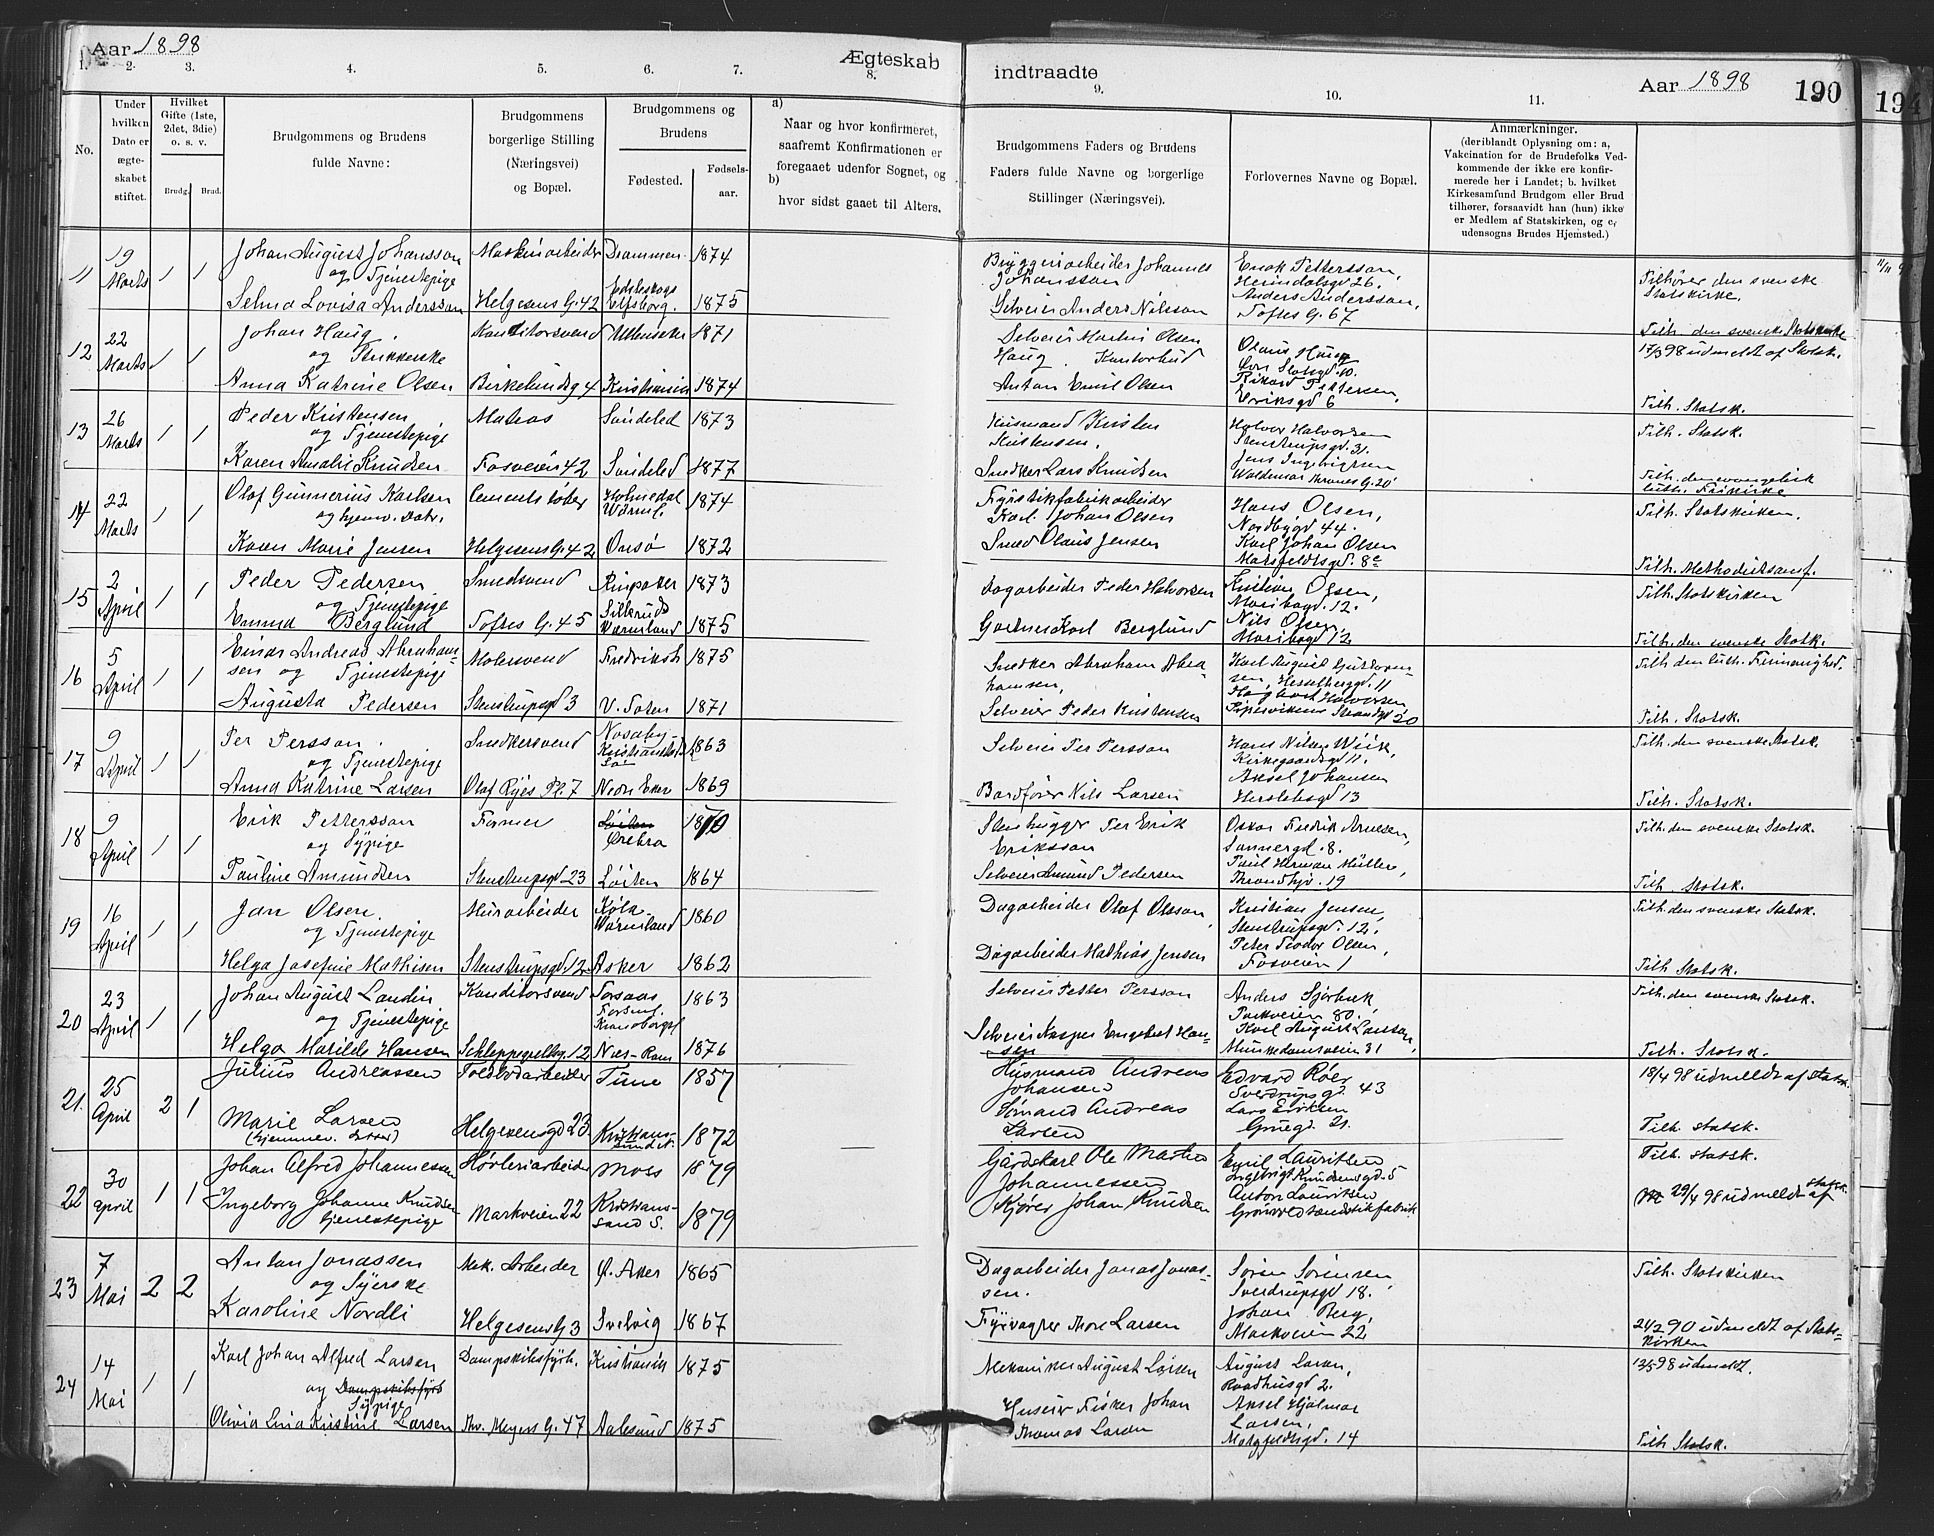 Aar 1898
Ægteskab
indtraadte
Aar 1898
190
194
1. 2. 3. 4. 5. 6. 7. 8. 9. 10. 11.
No.
Under hvilken Dato er ægteskabet stiftet.
Hvilket Gifte (1ste, 2det, 3die) o. s. v.
Brudg. Brud.
Brudgommens og Brudens fulde Navne:
Brudgommens borgerlige Stilling (Næringsvei) og Bopæl.
Brudgommens og Brudens
Fødested. Fødselsaar.
a) Naar og hvor konfirmeret, saafremt Konfirmationen er foregaaet udenfor Sognet, og
b) hvor sidst gaaet til Alters.
Brudgommens Faders og Brudens Faders fulde Navne og borgerlige Stillinger (Næringsvei).
Forlovernes Navne og Bopæl.
Anmærkninger.
(deriblandt Oplysning om: a, Vakcination for de Brudefolks Vedkommende der ikke ere konfirmerede her i Landet; b. hvilket Kirkesamfund Brudgom eller Brud tilhører, forsaavidt han (hun) ikke er Medlem af Statskirken, og c, udensogns Brudes Hjemsted.)
11 19 Marts 1 1
Johan August Johansson og Tjenestepige Selma Lovisa Andersson
Maskinarbeider Helgesens G. 42
Drammen 1874
Elfsborg. 1875
Bryggeriarbeider Johannes Johansson
Selveier Anders Nilsson
Enok Pettersson, Heimdalsgd 26.
Anders Andersson, Toftes G. 67
Tilhører den svenske Statskirke.
Tilh. den svenske Statskirke
12 22 Marts 1 1
Johan Haug og Strikkerske Anna Katrine Olsen
Konditorsvend Birkelundsg 4
Ullensaker 1871
Kristiania 1874
Selveier Martin Olsen Haug. Kontorbud
Anton Emil Olsen
Olaus Haug
Rikard Pettersen, Eriksgd 6
17/3 98 udmeldt af Statsk.
Tilh. Statsk.
13 26 Marts 1 1
Peder Kristensen og Tjenestepige Karen Amalie Knudsen
Matros Fosveien 42
Søndeled 1873
Søndeled 1877
Husmand Kristen Kristensen.
Snedker Lars Knudsen
Halvor Halvorsen Stenstrupsgd. 31.
Jens Ingebrigtsen Waldemar Thranes G. 20
Tilh. Statsk.
Tilh. den evangelisk luth. Frikirke
14 22 Marts 1 1
Olaf Gunnerius Karlsen og hjemv. Datr. Karen Marie Jensen
Cementstøber Helgesens G. 42
Holmedal Värml. 1874
Onsø 1872
Fyrstikfabrikarbeider Karl Johan Olsen
Smed Olaus Jensen
Hans Olsen, Nordbygd 44.
Karl Johan Olsen
Tilh. Statskirken.
Tilh. Methodistsamf.
15 2 April 1 1
Peder Pedersen og Tjenestepige Emma Berglund
Smedsvend Toftes G. 45
Ringsaker 1873
Silleruds Wærmland 1875
Dagarbeider Peder Halvorsen
Gartner Karl Berglund
Kristian Olsen, Maribogd. 12.
Nils Olsen Maribogd 12
Tilh. Statskirken
Tilh. den svenske Statsk.
16 5 April 1 1
Einar Andreas Abrahamsen og Tjenestepige Augusta Pedersen
Malersvend Stenstrupsgd 3
Fredriksh 1875
V. Toten 1871
Snedker Abraham Abrahamsen,
Selveier Peder Kristensen
Karl August Gustavsen, Hesselbergd. 11
Hagbart Halvorsen Pipervikens Strandgd 20
Tilh. den luth. Frimenighed.
Tilh. Statsk.
17 9 April 1 1
Per Persson og Tjenestepige Anna Katrine Larsen
Snedkersvend Olaf Ryes Pl. 7
Nosaby Kristianstad Län 1863
Nedre Eker 1869
Selveier Per Persson
Bardfører Nils Larsen
Hans Nilsen Wiik, Kirkegaardsgd 11.
Aksel Johansen Herslebsgd 13
Tilh. den svenske Statsk.
Tilh. Statsk.
18 9 April 1 1
Erik Pettersson og Sypige Pauline Amundsen
Former Stenstrupsgd 23
Løiten Örebro 1870
Løiten 1864
Stenhugger Per Erik Eriksson
Selveier Amund Pedersen
Oskar Fredrik Arnesen, Sannergd. 8.
Paul Herman Müller, Throndhjv. 19
Tilh. den svenske Statsk.
Tilh. Statsk.
19 16 April 1 1
Jan Olsen og Tjenestepige Helga Josefine Mathisen
Murarbeider Stenstrupsgd 12
Köla Wärmland 1860
Asker 1862
Dagarbeider Olof Olsson,
Dagarbeider Mathias Jensen
Kristian Jensen, Stenstrupsgd. 12.
Peter Teodor Olsen, Fosveien 1
Tilh. den svenske Statsk.
Tilh Statsk.
20 23 April 1 1
Johan August Landin og Tjenestepige Helga Matilde Hansen
Konditorsvend Schleppegrellsg. 12
1863
Nes-Rom 1876
Selveier Petter Persson
Selveier Kasper Engebret Hansen
Anders Sjøbeck Parkveien 80.
Karl August Larsson, Munkedamsveien 31
Tilh. den svenske Statsk.
Tilh. Statsk.
21. 25 April 2 1
Julius Andreassen Marie Larsen (hjemmev. Datter)
Toldbodarbeider Helgesensgd 23
Tune 1857
Kristianssund N. 1872
Husmand Andreas Johansen
Sømand Andreas Larsen
Edvard Røer Sverdrupsgd. 43
Lars Eriksen Grueg. 21.
18/4 98 udmeldt af statsk.
Tilh. statsk.
22 30 April 1 1
Johan Alfred Johannessen Ingeborg Johanne Knudsen tjenestepige
Høvleriarbeider Markveien 22
Moss 1879
Kristianssand S. 1879
Gårdskarl Ole Martin Johannessen
Kjører Johan Knudsen
Emil Lauritsen Ingebrigt Knudsensgd. 5
Anton Lauritsen Grønvold tændstikfabrik
Tilh. statsk.
29/4 98 udmeldt af statsk.
23 7 Mai 2 2
Anton Jonassen og Syerske Karoline Nordli
Mek. Arbeider Helgesens G 3
Ø. Aker 1865
Svelvig 1867
Dagarbeider Jonas Jonassen.
Fyrvagter Thore Larsen
Søren Sørensen, Sverdrupsgd 18.
Johan Berg, Markveien 22
Tilh. Statskirken
24/2 90 udmeldt af Statskirken
24 14 Mai 1 1
Karl Johan Alfred Larsen og Dampskibsfyrb Sypige Olivia Lina Kristine Larsen
Dampskibsfyrb. Thv. Meyers G. 47
Kristiania 1875
Aalesund 1875
Mekaniker August Larsen
Huseier Fisker Johan Thomas Larsen
August Larsen, Raadhusgd 2.
Aksel Hjalmar Larsen, 14
12/5 98 udmeldt.
Tilh Statsk.